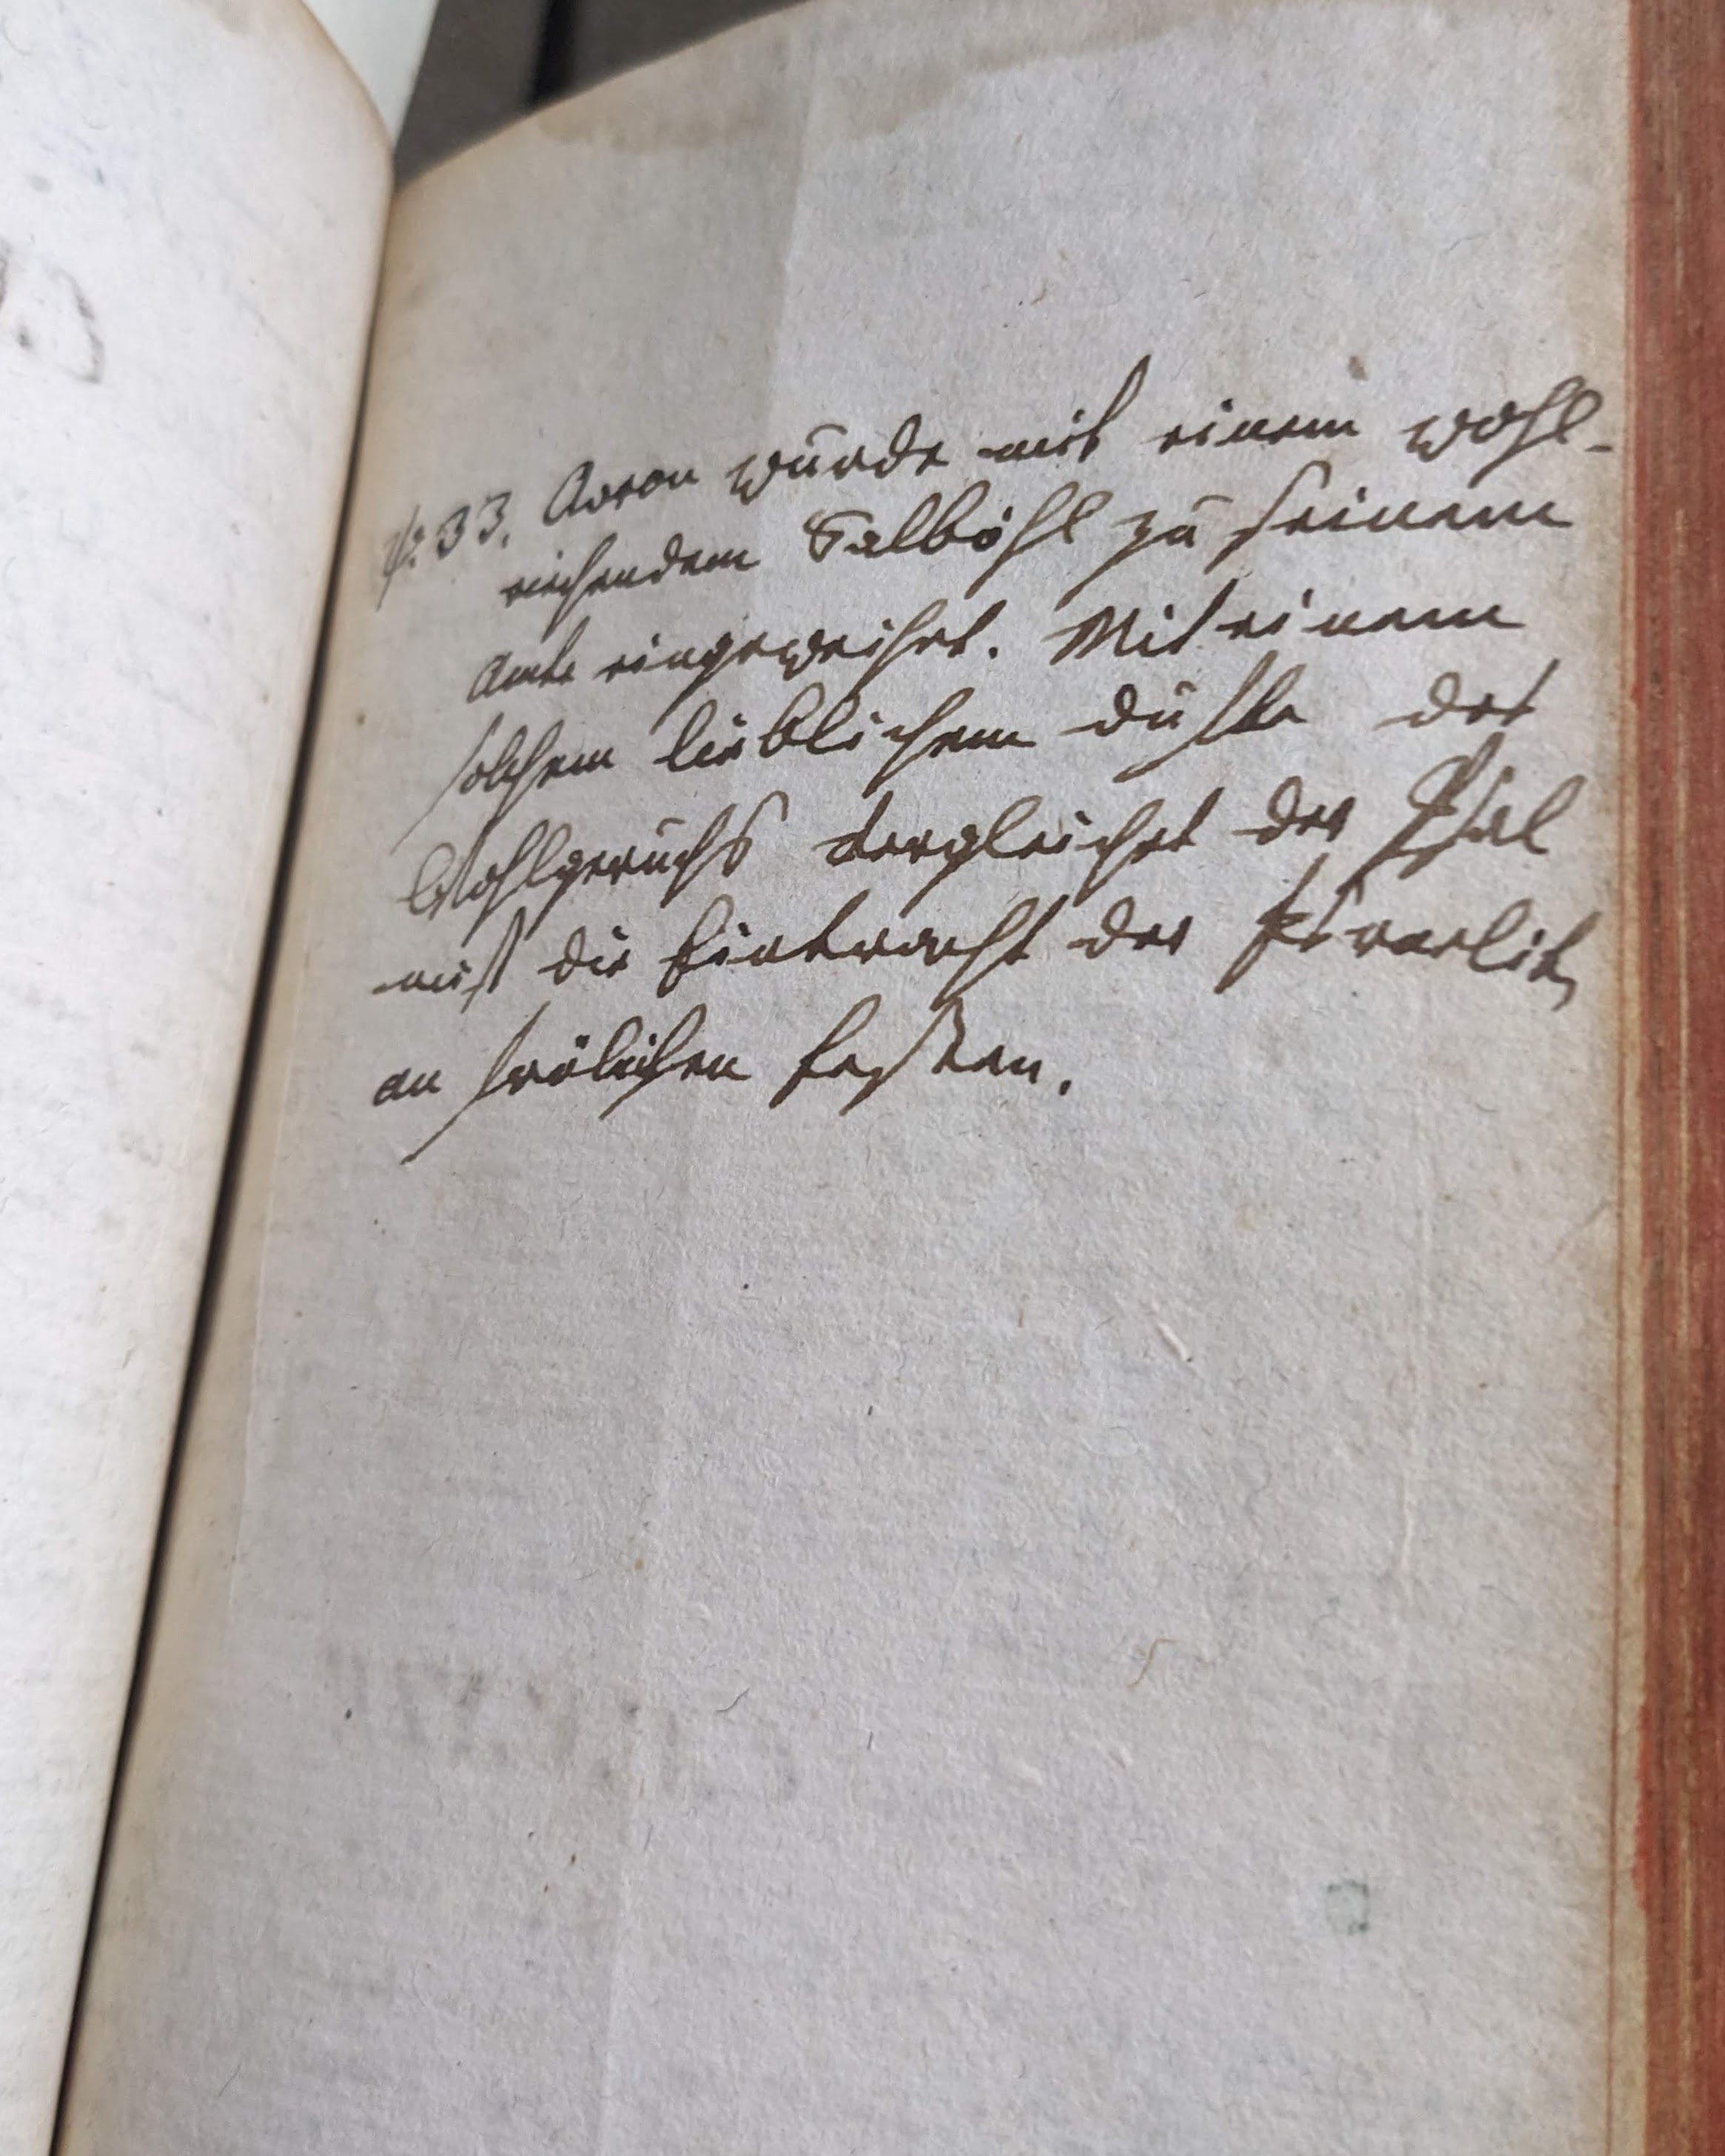 ψ. 33. Aaron wurde mit einem wohl-
riechendem Salböhl zu seinem
Amte eingeweihet. Mit einem
solchem lieblichem Dufte des
Wohlgeruchs vergleichet der Psal
mist die Eintracht der Israelit,
an frölichen Festen.